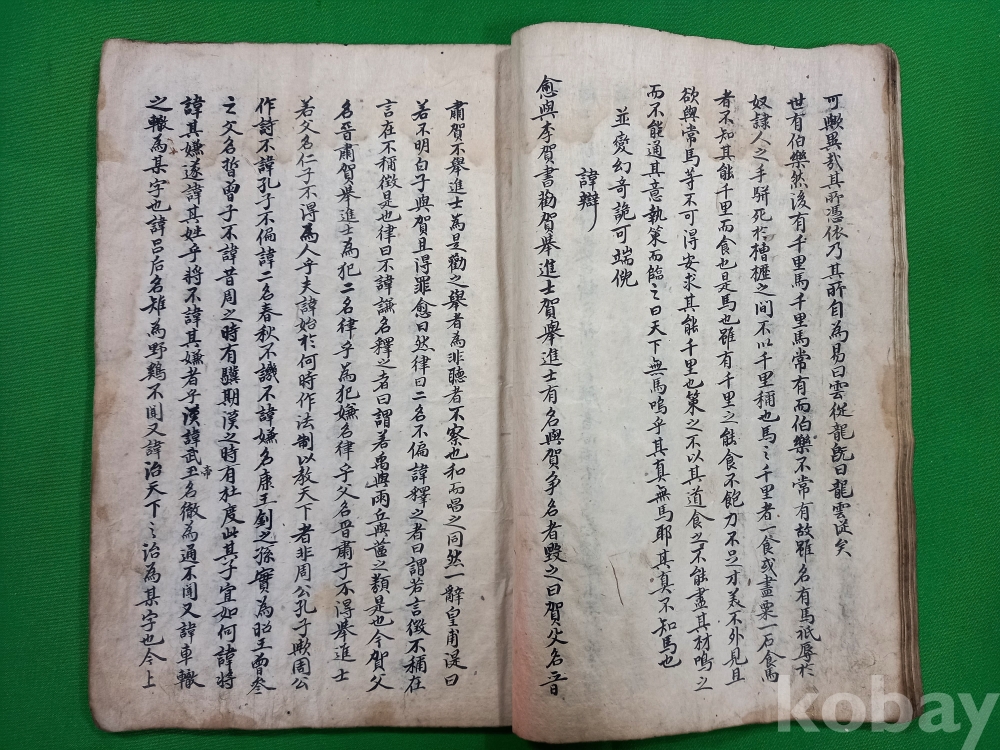 可歟異哉其所憑依乃其所自為易曰雲從龍旣曰龍雲從矣
世有伯樂然後有千里馬千里馬常有而伯樂不常有故雖名有馬祇辱於
奴隷人之手騈死於槽櫪之间不以千里稱也馬之千里者一食或盡粟一石食馬
者不知其能千里而食也是馬也雖有千里之能食不飽力不足才美不外見且
欲與常馬等不可得安求其能千里也策之不以其道食之不能盡其材鳴之
而不能通其意執策而臨之曰天下無馬嗚乎其真無馬耶其真不知馬也
並變幻奇詭可端倪
諱辯
愈與李賀書勸賀舉進士賀舉進士有名與賀争名者毀之曰賀父名晉
肅賀不舉進士為是勸之舉者為非聽者不察也和而唱之同然一辭皇甫湜曰
若不明白子與賀且得罪愈曰然律曰二名不偏諱釋之者曰謂若言徵不稱在
言在不稱徵是也律曰不諱嫌名釋之者曰謂若禹與雨丘與蓲之類是也今賀父
名晉肅賀舉進士為犯二名律乎為犯嫌名律乎父名晉肅子不得舉進士
若父名仁子不得為人乎夫諱始於何時作法制以教天下者非周公孔子歟周公
作詩不諱孔子不偏諱二名春秋不譏不諱嫌名康王釗之孫實為昭王曾參
之父名晳曾子不諱昔周之時有騏期漢之時有杜度此其子宜如何諱將
諱其嫌遂諱其姓乎將不諱其嫌者乎漢諱武王帝名徹為通不聞又諱車轍
之轍為某字也諱呂后名雉為野鷄不聞又諱治天下之治為某字也今上
kobay